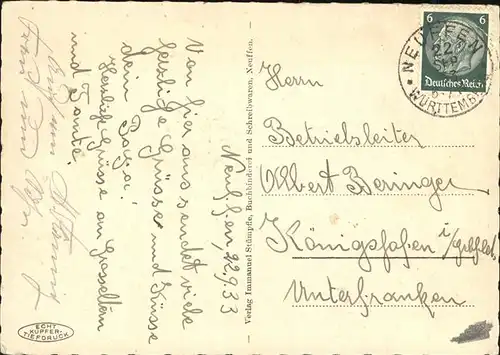 Neuffen, 22.9.33
Von hier aus sendet viele
herzliche Grüsse und Küsse
dein Papa!
Herzliche Grüsse an Grosseltern
und Tante.
Verlag Immanuel Stümpfle, Buchbinderei und Schreibwaren, Neuffen.
ECHT
KUPFER-
TIEFDRUCK
6 6
Deutsches Reich
NEUFFEN
WÜRTTEMB.
Herrn
Betriebsleiter
Albert Beringer
Königshofen i/Grabfeld
Unterfranken